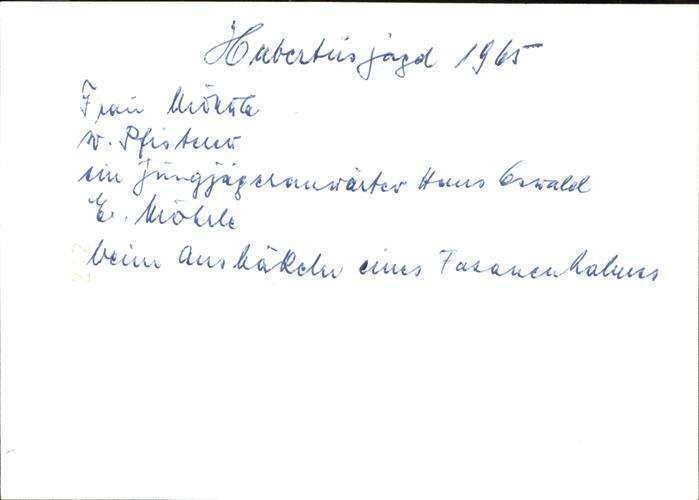 Hubertusjagd 1965
Frau Möhrle
W. Pfisterer
ein Jungjägeranwärter Hans Oswald
E. Möhrle
beim Aushäkeln eines Fasanenhahnes